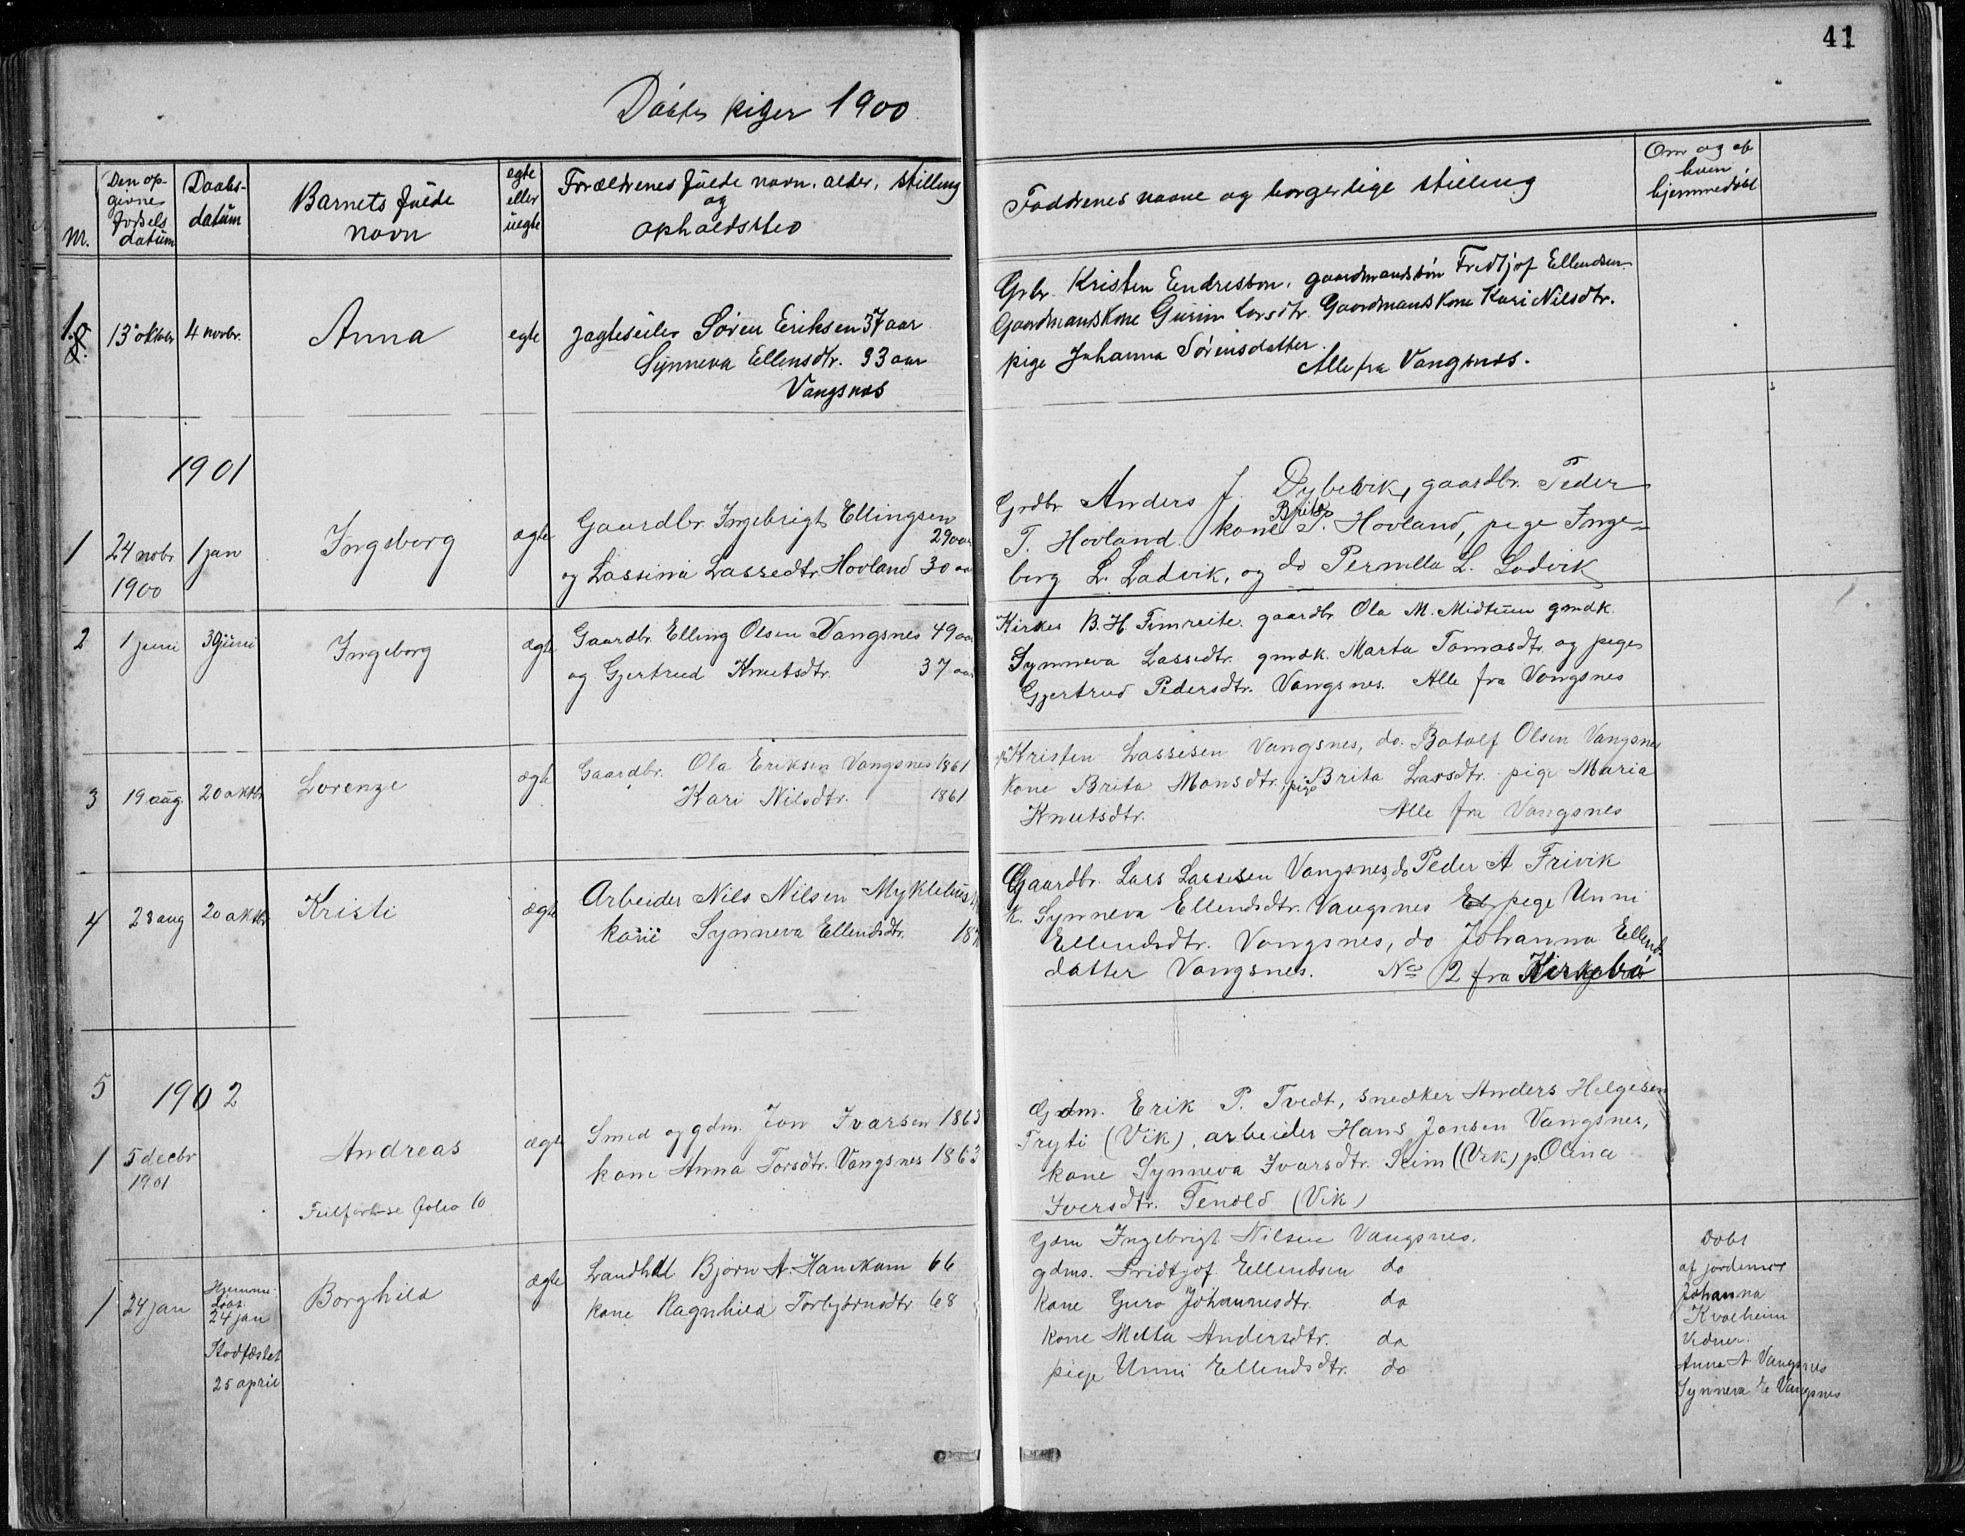 41
Døbte piger 1900
Nr.
Den op-
givne
fødsels
datum
Daabs-
datum
Barnets fulde
navn
egte
eller
uegte
Forældrenes fulde navn, alder, stilling
og
opholdssted
Faddrenes navne og borgerlige stilling
Om og af
hvem
hjemmedøbt
10
13 oktobr
4 novbr.
Anna
egte
Jagteseiler Søren Eriksen 37 aar
Synneva Ellensdtr. 33 aar
Vangsnes
Grbr. Kristen Endresson, gaardmandssøn Fredtjof Ellendsen
Gaardmandskone Gurine Larsdtr. Gaardmandskone Kari Nilsdtr.
pige Johanna Sørensdatter.
Alle fra Vangsnes.
1901
1
24 nobr
1900
1 jan
Ingeborg
ægte
Gaardbr. Ingebrigt Ellingsen
29 aar
og Lassina Lassedtr. Hovland 30 aar
Grdbr Anders J. Dybevik, gaardbr. Peder
T. Hovland. kone Brita P. Hovland, pige Inge-
borg L. Ladvik, og do Pernella L. Ladvik
2
1 juni
30 juni
Ingeborg
ægte
Gaardbr. Elling Olsen Vangsnes 49 aar
og Gjertrud Knutsdtr. 37 aar
Kirkes. B. H. Fimreite. gaardbr. Ola M. Midtun gmdk.
Synneva Lassedtr. gmdk. Marta Tomasdtr. og pige
Gjertrud Pedersdtr. Vangsnes. Alle fra Vangsnes
3
19 aug.
20 oktbr
Lorenze
ægte
Gaardbr. Ola Eriksen Vangsnes 1861
Kari Nilsdtr. 1861
Kristen Lassesen Vangsnes, do. Botolf Olsen Vangsnes
kone Brita Monsdtr. pige Brita Larsdtr. pige Maria
Knutsdtr.
Alle fra Vangsnes
4
28 aug
20 oktbr
Kristi
ægte
Arbeider Nils Nilsen Myklebust
kone Synneva Ellendsdtr.
Gaardbr. Lars Lassesen Vangsnes, do Peder A Frivik
k. Synneva Ellendsdtr. Vangsnes pige Unni
Ellendsdtr. Vangsnes, do Johanna Ellends
datter Vangsnes. No 2 fra Kirkebø
5
1902
1
5 decbr
1901
Andreas
Tilførelse folio 10
ægte
Smed og gdm. Jon Ivarsen 1863
kone Anna Torsdtr. Vangsnes 1863
Gdm. Erik P. Tvedt, snedker Anders Helgesen
Tryti (Vik), arbeider Hans Jonsen Vangsnes,
kone Synneva Ivarsdtr. Seim (Vik) p Olina
Iversdtr. Tenold (Vik)
1
24 jan
Hjemme-
døbt
24 jan
Stadfæstet
25 april
Borghild
ægte
Landhdl Bjørn A. Hanekam 66
kone Ragnhild Torbjørnsdtr 68
Gdm Ingebrigt Nilsen Vangsnes.
gdms. Fridtjof Ellendsen do
Kone Guro Johannesdtr. do
Kone Metta Andersdtr. do
pige Unni Ellendsdtr. do
Døbt
af jordemor
Johanna
Kvalheim
Vidner.
Anna A Vangsnes
Synneva E Vangsnes